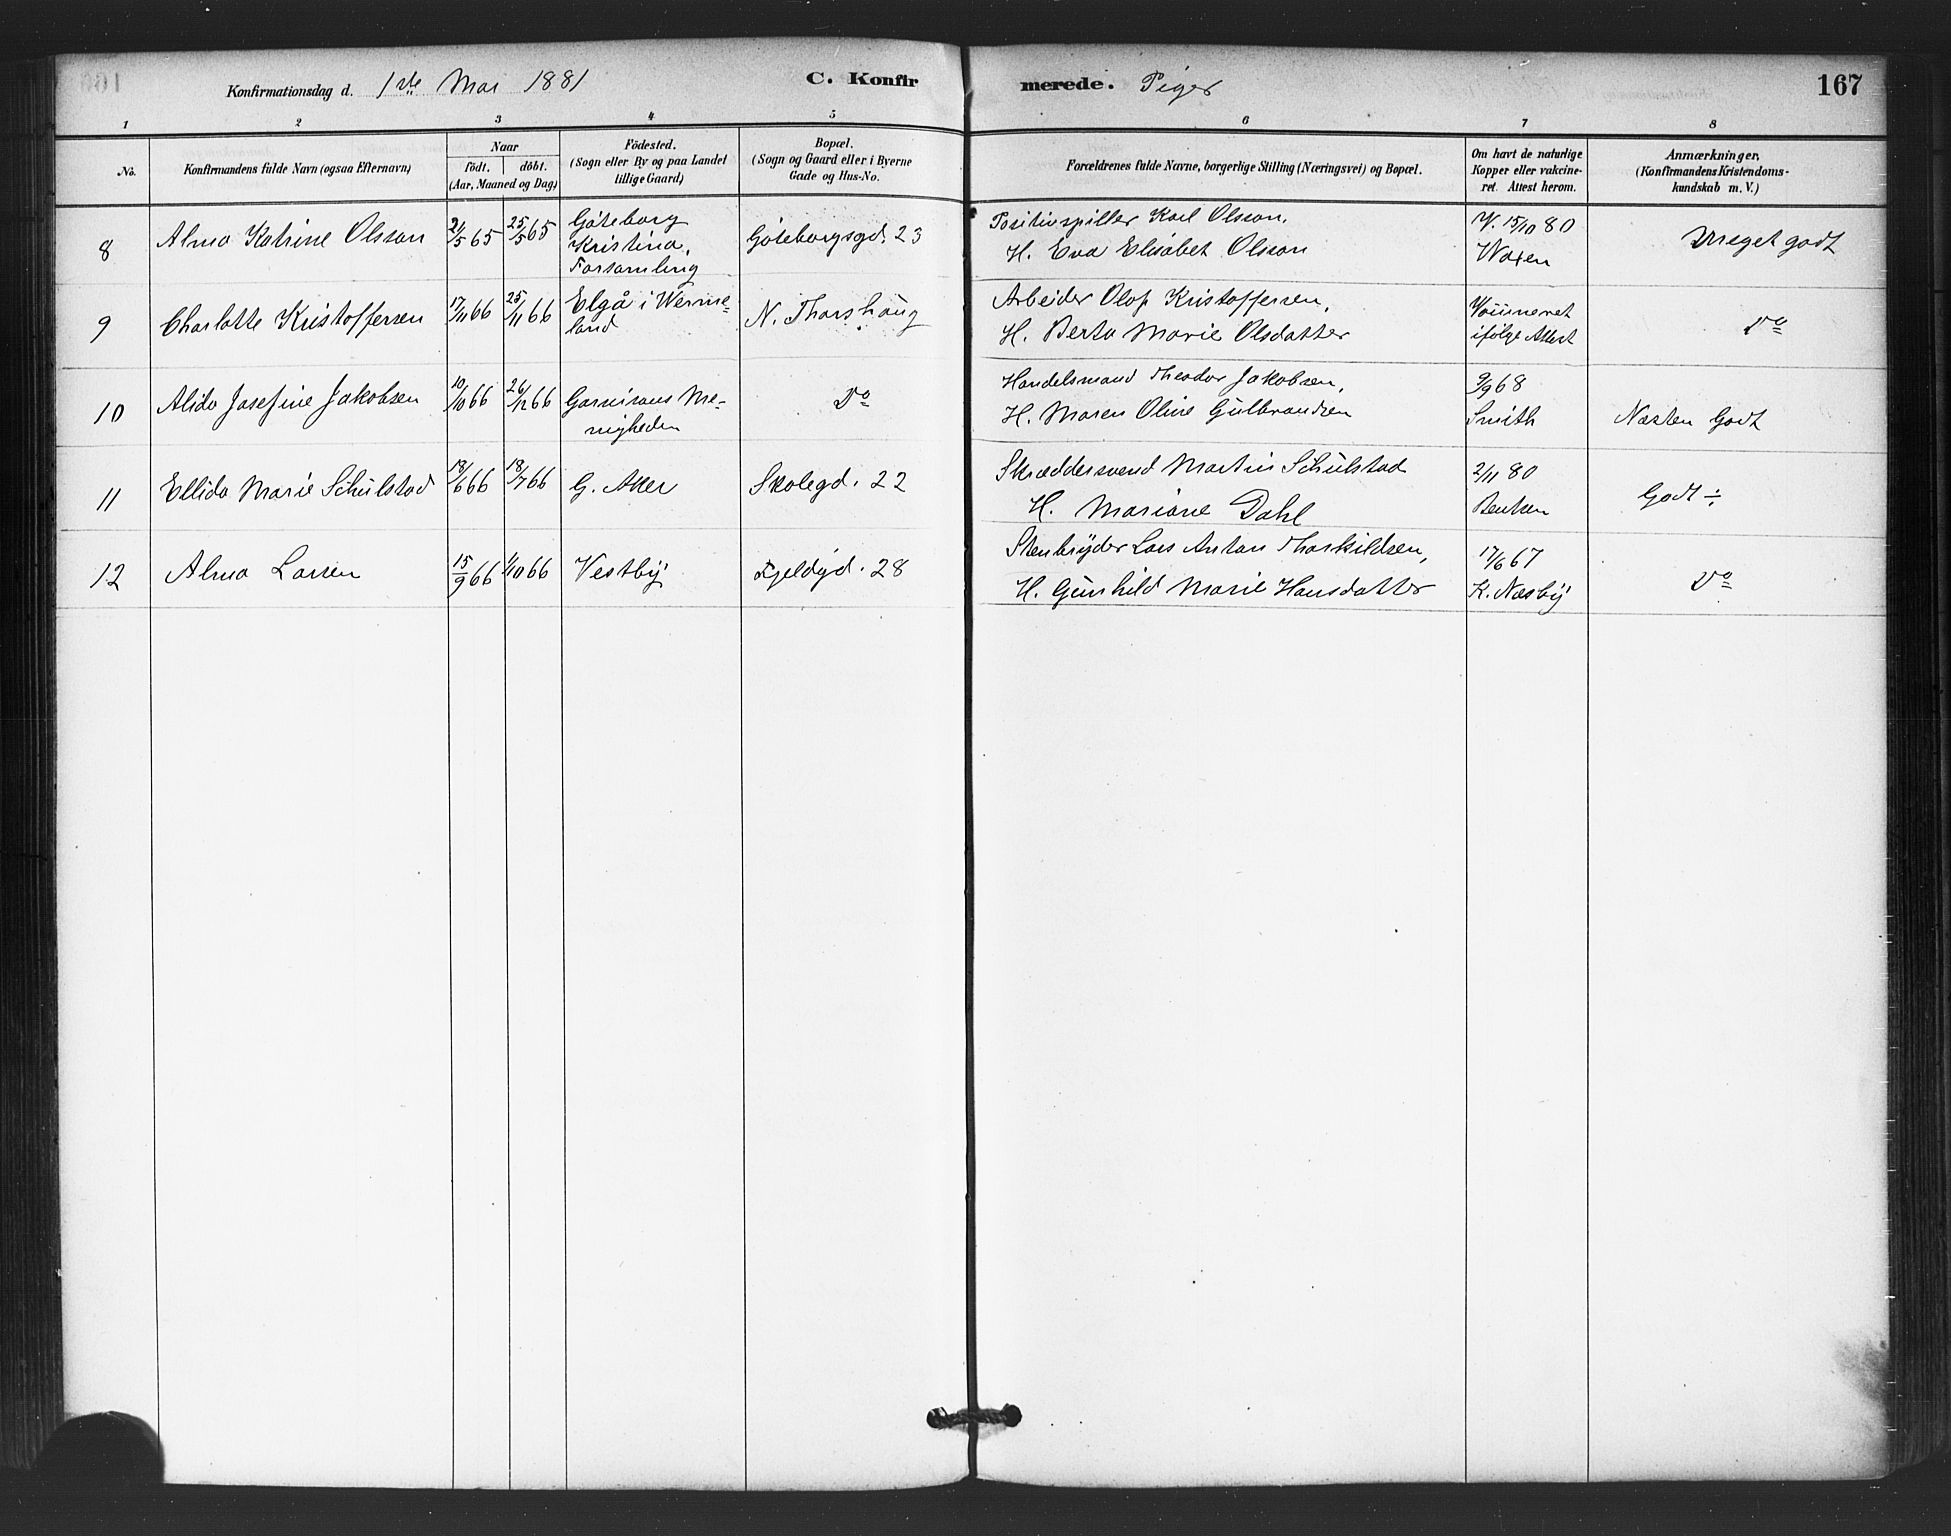 Konfirmationsdag d. 1ste Mai 1881 C. Konfirmerede. Piger 167
1 2 3 4 5 6 7 8
No. Konfirmandens fulde Navn (ogsaa Efternavn) Naar födt. döbt. (Aar, Maaned og Dag) Födested. (Sogn eller By og paa Landet tillige Gaard) Bopæl. (Sogn og Gaard eller i Byerne Gade og Hus-No. Forældrenes fulde Navne, borgerlige Stilling (Næringsvei) og Bopæl. Om havt de naturlige Kopper eller vakcineret. Attest herom. Anmærkninger, (Konfirmandens Kristendomskundskab m. V.)
8 Alma Katrine Olsson 2/5 65 25/5 65 Göteborg Kristina, Forsamling Göteborgsgd. 23 Positivspiller Karl Olsson, V. 15/10 80 Meget godt
H. Eva Elisabet Olsson Waxen
9 Charlotte Kristoffersen 17/11 66 25/11 66 Elgå i Werme=land N. Thorshaug Arbeider Olof Kristoffersen, ifølge Attest Do
H. Berta Marie Olsdatter
10 Alida Josefine Jakobsen 10/10 66 26/12 66 Garnisons Me-nigheden Do Handelsmand Theodor Jakobsen, 9/9 68
H. Maren Oline Gulbrandsen Smith Næsten Godt
11 Ellida Marie Schulstad 18/6 66 18/7 66 G. Aker Skolegd. 22 Skræddersvend Martin Schulstad 2/11 80 Godt ÷
H. Mariane Dahl Bentzen
12 Alma Larsen 15/9 66 1/10 66 Vestby Fjeldgd. 28 Stenbryder Lars Anton Thorkildsen, 17/6 67 Do
H. Gunhild Marie Hansdatter K. Næsby